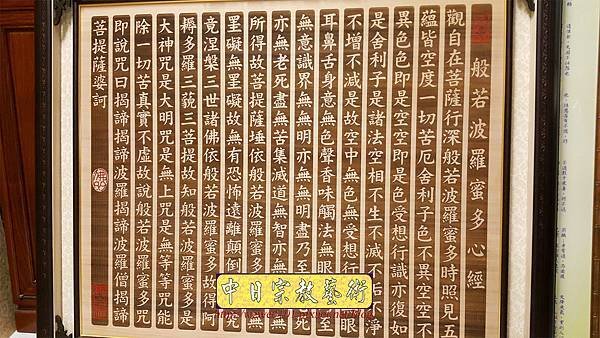 般若波羅蜜多心經
觀自在菩薩行深般若波羅蜜多時照見五
蘊皆空度一切苦厄舍利子色不異空空不
異色色即是空空即是色受想行識亦復如
是舍利子是諸法空相不生不滅不垢不淨
不增不減是故空中無色無受想行 眼
耳鼻舌身意無色聲香味觸法無眼
無意識界無無明亦無無明盡乃至 死
亦無老死盡無苦集滅道無智亦無 無
所得故菩提薩埵依般若波羅蜜多 無
罣礙無罣礙故無有恐怖遠離顛倒 究
竟涅槃三世諸佛依般若波羅蜜多故得阿
耨多羅三藐三菩提故知般若波羅蜜多是
大神咒是大明咒是無上咒是無等等咒能
除一切苦真實不虛故說般若波羅蜜多咒
即說咒曰揭諦揭諦波羅揭諦波羅僧揭諦
菩提薩婆訶
中日宗教藝術